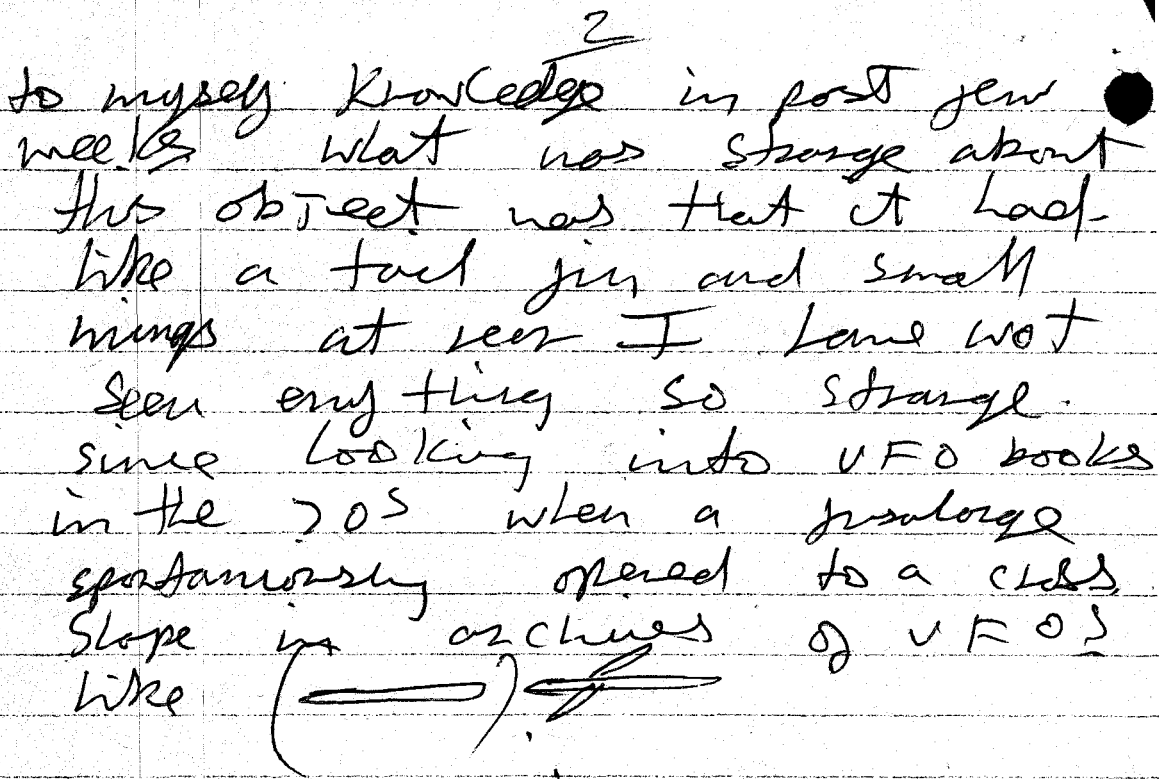 2
to myself Knowledge in past few
weeks what was strange about
this object was that it had
like a tail fin and small
wings at rear I have not
seen any thing so strange.
since looking into UFO books
in the 70s when a fusalarge
spontaniously opened to a cross
Shape in archives of UFOS
like